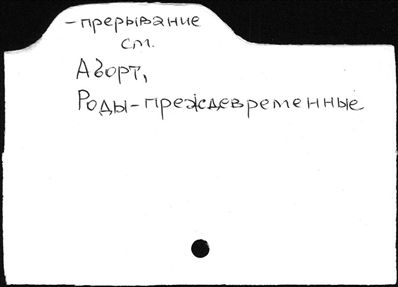 -прерывание
см.
Аборт,
Роды-преждевременные